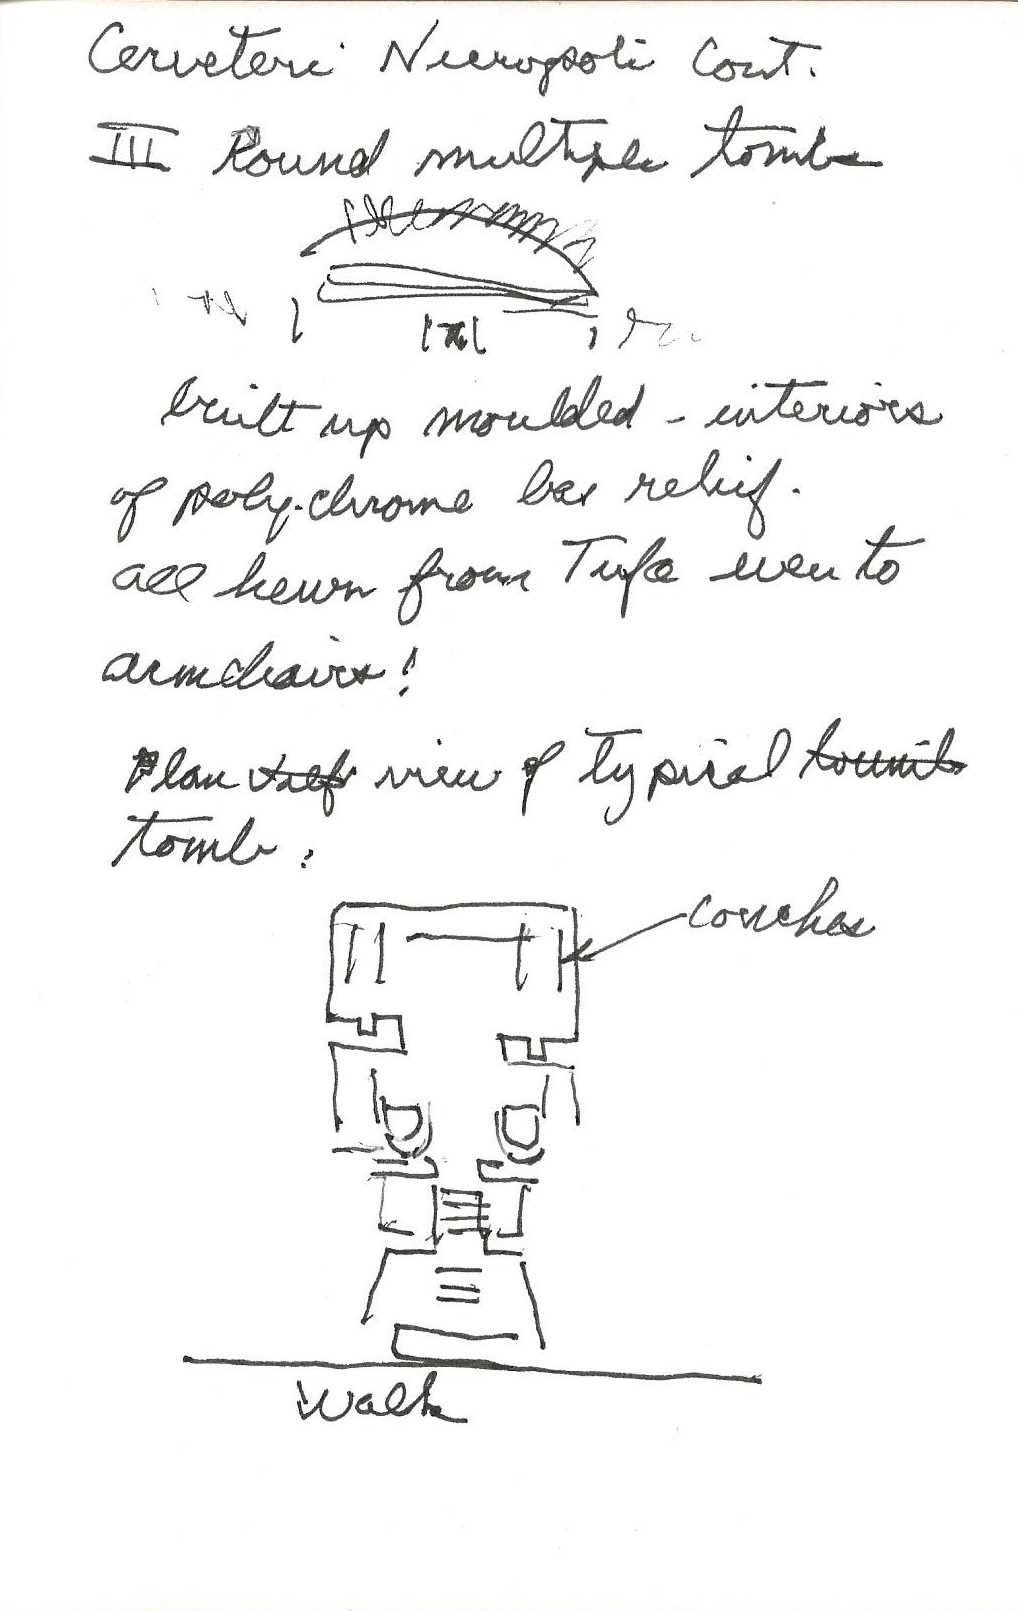 Cerveteri Necropoli Cont.
III Round multiple tombs
built up moulded - interiors
of poly-chrome bas relief.
all hewn from Tufa even to
armchairs!
Plan view of typical
tomb:
conches
Walk